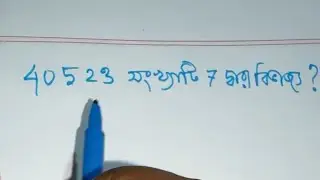 40523 সংখ্যাটি 7 দ্বারা বিভাজ্য ?